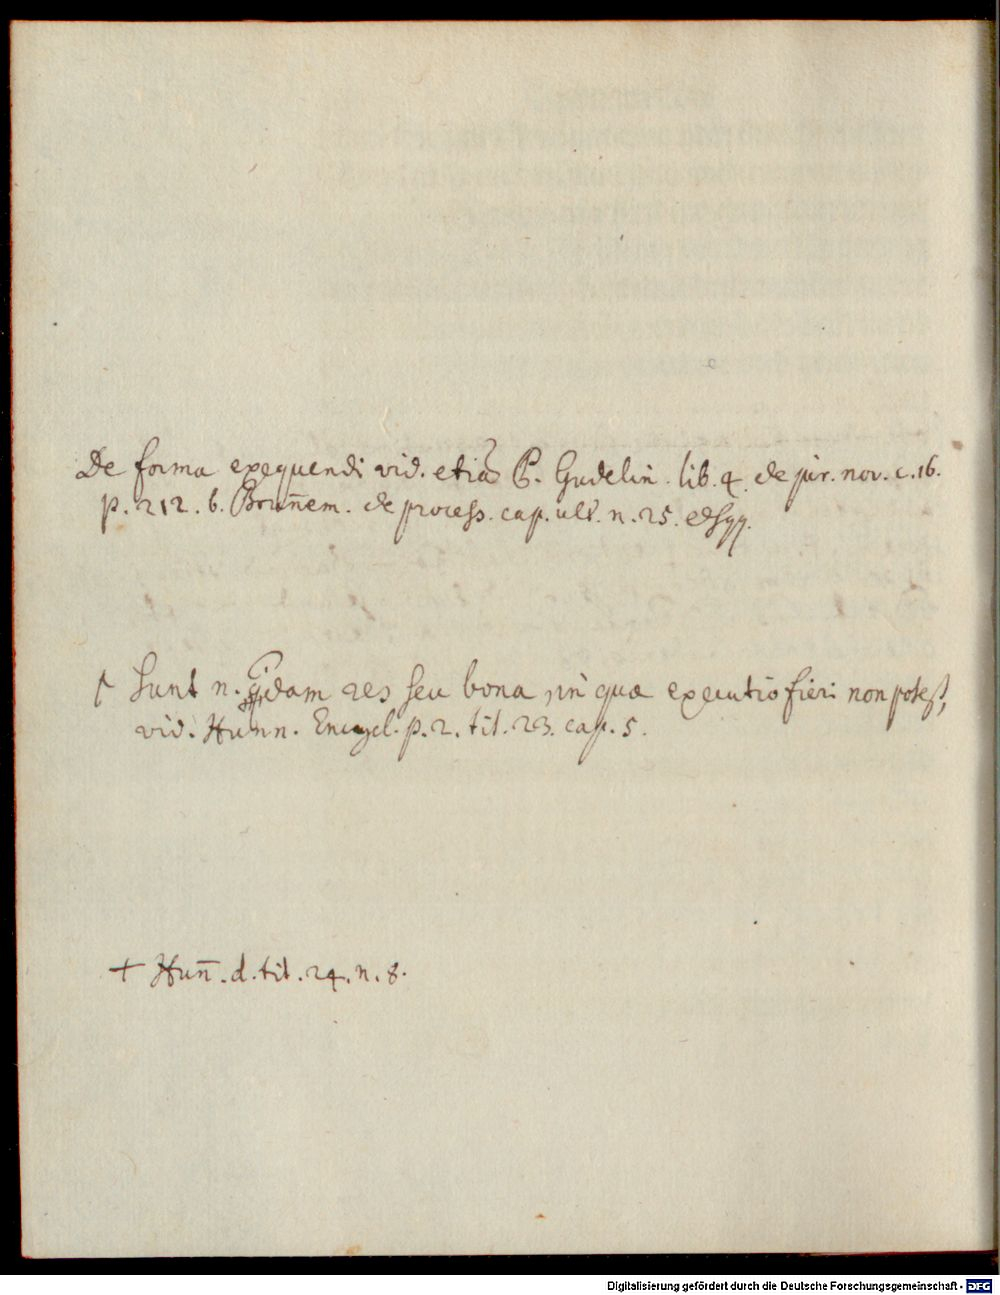 De forma exequendi vid. etiā P. Gudelin. lib. 4. de jur. nov. c. 16.
p. 212. b. Brun̄em. de process. cap. ult. n. 25. et sqq.
† Sunt n. q͂dam res seu bona, in quæ executio fieri non potest,
vid. Hunn. Encycl. p. 2. tit. 23. cap. 5.
† Hun̄. d. tit. 24. n. 8.
Digitalisierung gefördert durch die Deutsche Forschungsgemeinschaft - DFG